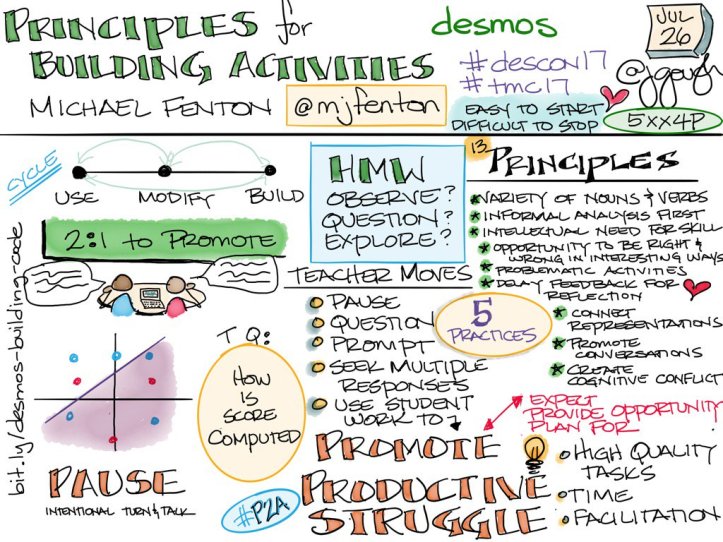 PRINCIPLES for
BUILDING ACTIVITIES
MICHAEL FENTON
@mjfenton
desmos
#descon17
#tmc17
EASY TO START
DIFFICULT TO STOP
JUL
26
@jgough
5xx4P
CYCLE
USE MODIFY BUILD
2:1 to PROMOTE
bit.ly/desmos-building-code
PAUSE
INTENTIONAL TURN & TALK
T Q:
HOW
IS
SCORE
COMPUTED
#P2A
HMW
OBSERVE?
QUESTION?
EXPLORE?
TEACHER MOVES
PAUSE
QUESTION
PROMPT
SEEK MULTIPLE
RESPONSES
USE STUDENT
WORK TO
PROMOTE
PRODUCTIVE
STRUGGLE
5
PRACTICES
13
PRINCIPLES
VARIETY OF NOUNS & VERBS
INFORMAL ANALYSIS FIRST
INTELLECTUAL NEED FOR SKILL
OPPORTUNITY TO BE RIGHT &
WRONG IN INTERESTING WAYS
PROBLEMATIC ACTIVITIES
DELAY FEEDBACK FOR
REFLECTION
CONNECT
REPRESENTATIONS
PROMOTE
CONVERSATIONS
CREATE
COGNITIVE CONFLICT
EXPECT
PROVIDE OPPORTUNITY
PLAN FOR
HIGH QUALITY
TASKS
TIME
FACILITATION